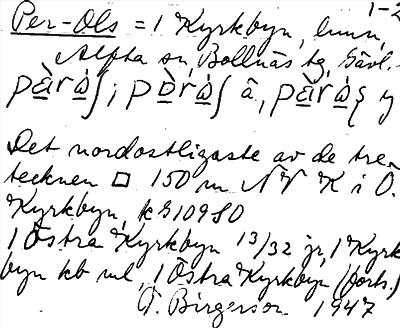 1-2
Per-Ols = 1 Kyrkbyn, inun,
Alfta sn, Bollnäs tg, Gävl.
Det nordostligaste av de tre
tecknen □ 150 m NV K i Ö.
Kyrkbyn, kB 109 SO
1 Östra Kyrkbyn 13/32 jr, 1 Kyrk
byn kb ml, 1 Östra Kyrkbyn (forts.)
G. Birgerson 1947